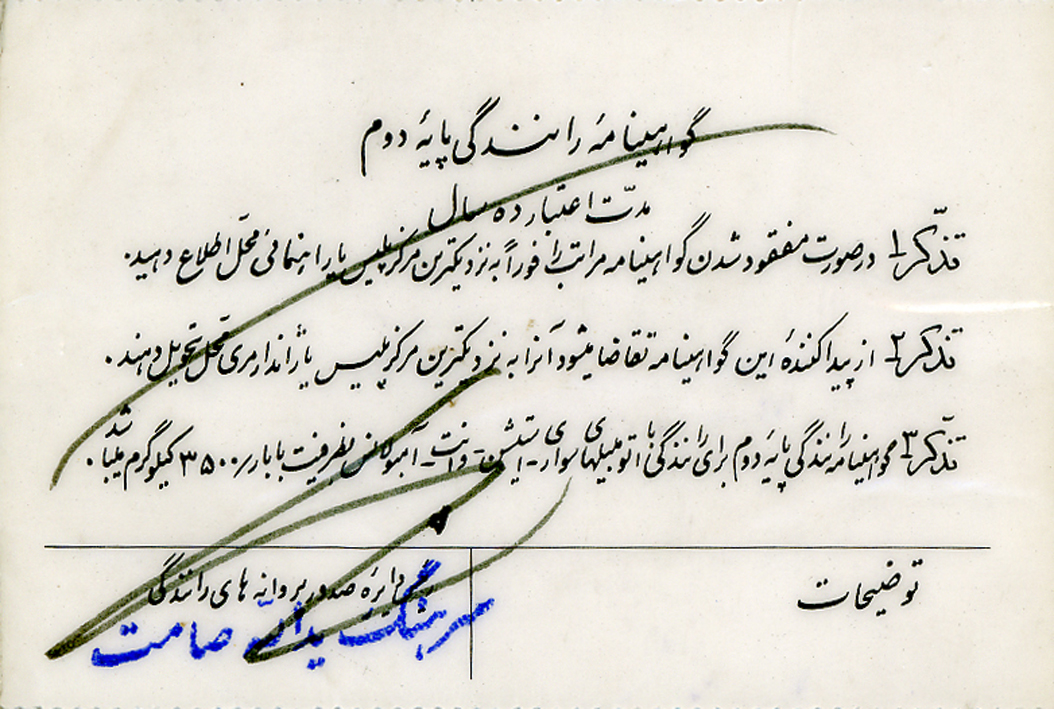 گواهینامهٔ رانندگی پایهٔ دوم
مدّت اعتبار ده سال
تذکّر ۱ـ درصورت مفقود شدن گواهینامه مراتب را فوراً به نزدیکترین مرکز پلیس یا راهنمائی محل اطلاع دهید.
تذکر ۲ـ از پیدا کنندهٔ این گواهینامه تقاضا میشود آنرا به نزدیکترین مرکز پلیس یا ژاندارمری محل تحویل دهند.
تذکّر ۳ـ گواهینامه رانندگی پایهٔ دوم برای رانندگی با اتومبیلهای سواری ـ استیشن ـ وانت ـ آمبولانس بظرفیت با بار ۳۵۰۰ کیلوگرم میباشد.
توضیحات
دایرهٔ صدور پروانه های رانندگی
سرهنگ یدالله صامت